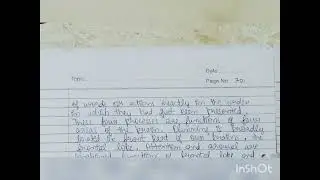 Topic:
Date
Page No: 30.
of words or actions exactly in the order
in which they had just been presented.
These four processes are functions of four
areas of the brain. Planning is broadly
located the front part of our brains, the
frontal lobe. Attention and arousal are
functions of frontal lobe and
InShOt